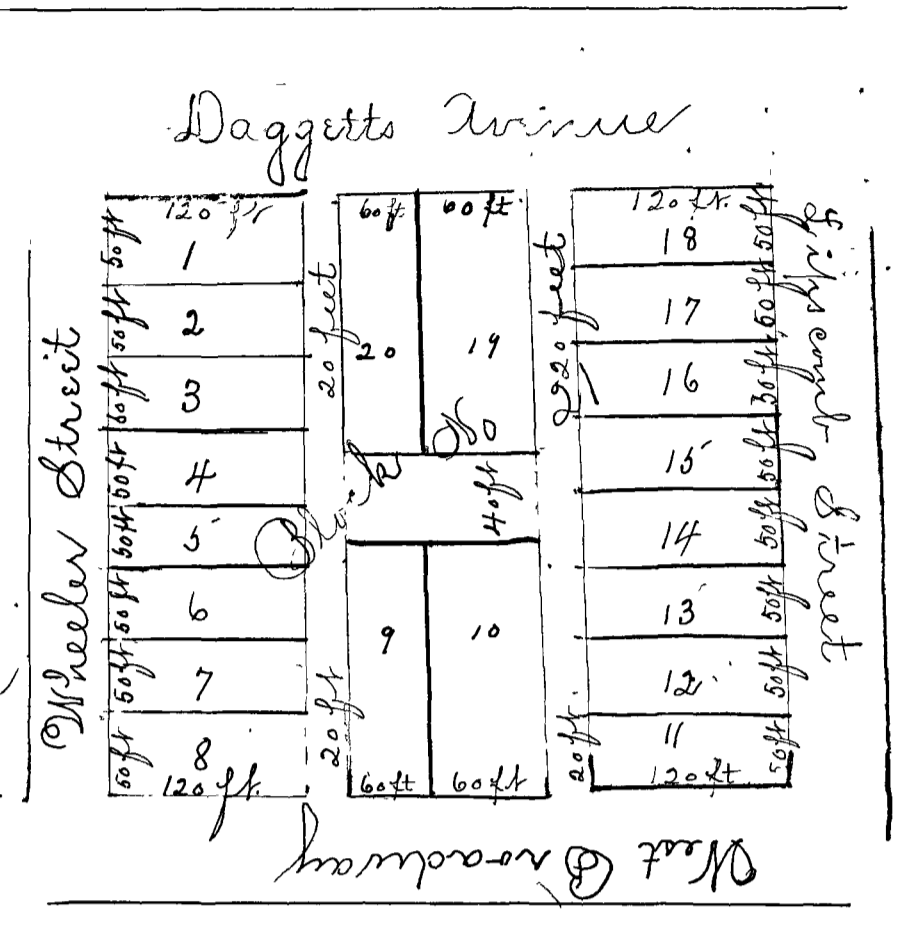 Daggetts Avinue
120 ft
50ft
1
50ft
2
60ft
3
50ft
4
50ft
5
50ft
6
50ft
7
50ft
8
120 ft.
Wheeler Street
20 feet
20 ft
60 ft
60 ft.
20
19
Block No
40ft
9
10
60 ft
60 ft
20 feet
20 ft
120 ft.
18
50ft
17
50ft
16
30ft
15
50ft
14
50ft
13
50ft
12
50ft
11
50ft
120 ft
Lipscomb Street
West Broadway